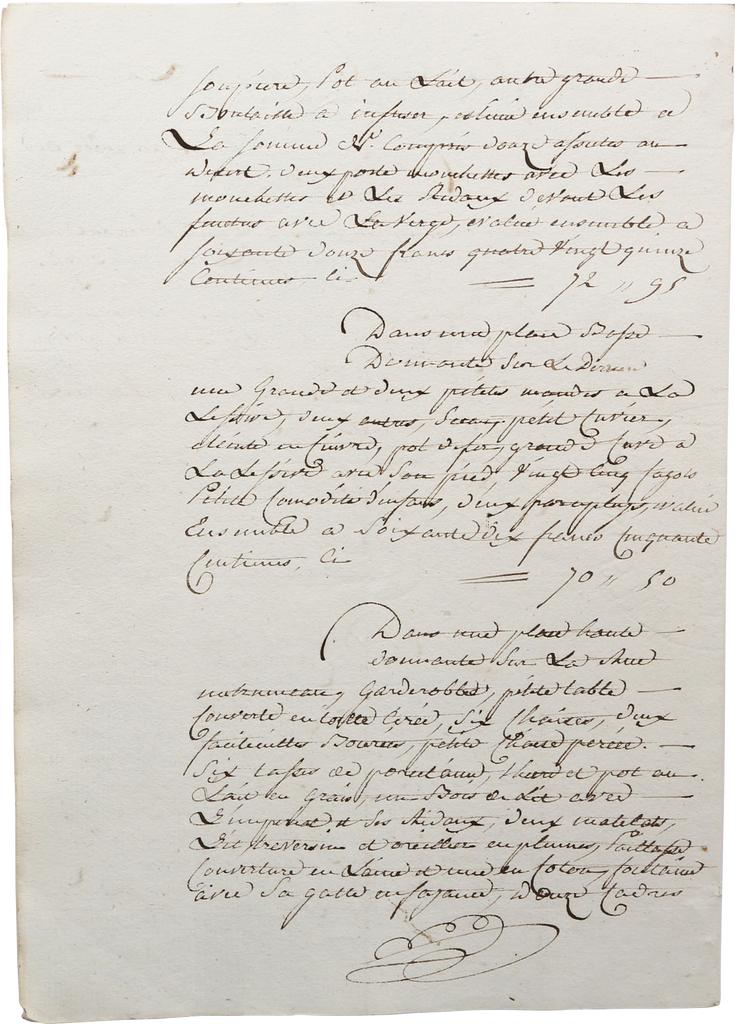 soupiere, Pot au Lait, autre grande
Bouteille à infuser, estimé ensemble a
La somme Compris douze assietes au
desert. deux porte mouchettes avec Les
mouchettes et Les Ridaux devant Les
avec La verge, evalué ensemble a
soixante douze francs quatre vingt quinze
Centimes, Ci = 72 " 95
Dans une place Basse
Donnante Sur Le Derriere
une Grande et deux pétites mandes a La
Lessive, deux autres, Seau, pétit Cuvier,
en Cuivre, pot de fer, grande Cuve a
La Lessive avec Son pied Vingt Cinq fagots
Petite Comodité d'enfans, deux parapluys, evalué
Ensemble a Soixante dix francs Cinquante
Centimes, Ci = 70 " 50
Dans une place haute
donnante Sur La Rue
Garderobbes, pétite table
Couverte en toille Cirée, Six Chaises, deux
fauteuilles Bourées, petite Chaise percée.
Six tasses de porcelaine, et pot au
Lait en Grais, un Bois de Lit avec
L'imperial et Ses Ridaux, deux matelats,
Lit traversin et oreiller en plumes, Paillasse
Couverture en Laine et une en Coton, fontaine
avec Sa en fayance, douze Cadres